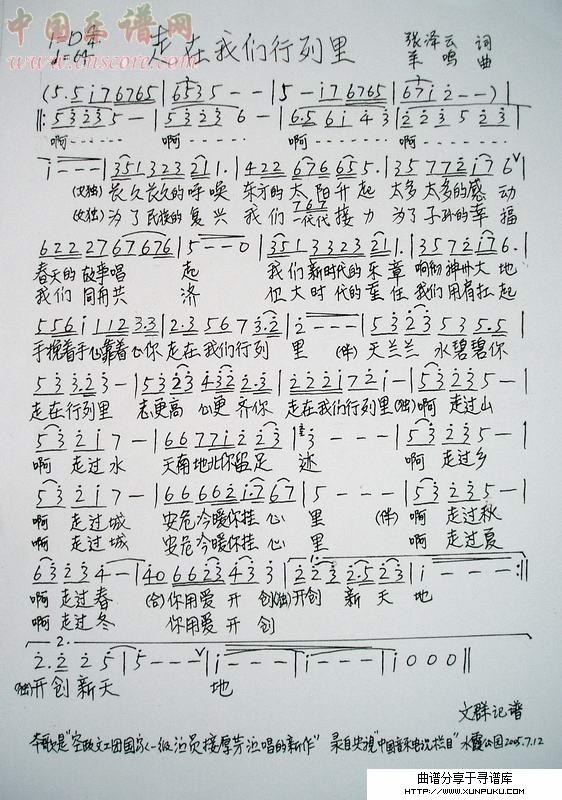 中国乐谱网
www.cnscore.com
1=D 4/4
走在我们行列里
张泽云 词
羊鸣 曲
(5.5 i 7 6765 | 6 5 3 5 - - | 5 - i 7 6765 | 6 7 i 2 - -) |
‖: 5 3 2 3 5 - | 5 3 2 3 6 - | 6.5 6 i 4 3 | 2 2 3 5 2 3 |
啊------ 啊------ 啊------ 啊------
i - - - | 3 5 1 3 2 3 2 1 1. | 4 2 2 6 7 6 6 5 5. | 3 5 7 7 2 i 7 6 |
(女独) 长久长久的呼唤 东方的太阳升起 太多太多的感动
(女独) 为了民族的复兴 我们一代代接力 为了子孙的幸福
6 2 2 2 7 6 7 6 7 6 | 5 - - 0 | 3 5 1 3 3 2 3 2 1 1. | 3 5 7 2 i 7 6. |
春天的故事唱起 我们新时代的乐章 响彻神州大地
我们同舟共济 伟大时代的重任 我们用肩扛起
5 5 6 i 1 1 2 3.3 | 2.3 5 6 7 3.2 | 2 - - - | 5 3 2 3 5 3 5.5 |
手挽着手心靠着心你走在我们行列里 (伴) 天兰兰 水碧碧你
5 3 3 3.2 3 - | 5 3 2 3 4 3 2 2.3 | 2 2 2 i 7 2 i - | 5 3 2 3 5 - |
走在行列里 志更高 心更齐你 走在我们行列里 (独) 啊 走过山
5 3 2 i 7 - | 6 6 7 7 i 2 2 3 | 3 - - - | 5 3 2 3 5 - |
啊 走过水 天南地北你留足迹 啊 走过乡
5 3 2 i 7 - | 6 6 6 6 2 i.7 6 7 | 5 - - - | 5 3 2 3 5 - |
啊 走过城 安危冷暖你挂心里 (伴) 啊 走过秋
啊 走过城 安危冷暖你挂心里 啊 走过夏
6 3 2 3 4 - | 4 0 6 6 2 3 4 3 3 | 2 2 3 2.5 2 3 | i - - - :‖
啊 走过春 (合) 你用爱开创 (独) 开创新天地
啊 走过冬 你用爱开创
2.
2. 2 2 5 | 5 - - - | i - - - | i - - - | i 0 0 0 ‖
(独) 开创新天 地
文群记谱
本歌是"空政文工团国家一级演员接厚芳演唱的新作" 录自央视"中国音乐电视栏目" 水霞公园2005.7.12
曲谱分享于寻谱库
HTTP://WWW.XUNPUKU.COM